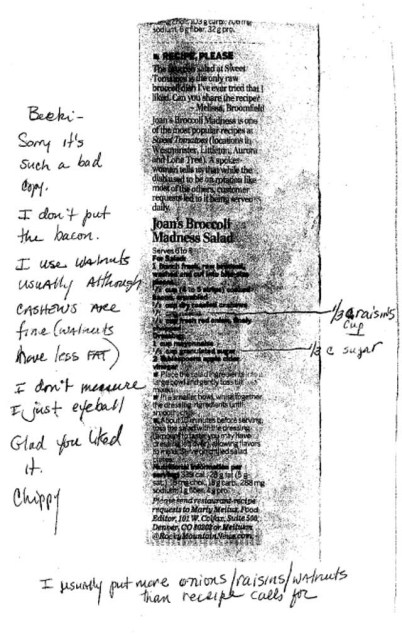 sodium, 6 g fiber, 32 g pro.
RECIPE, PLEASE
The broccoli salad at Sweet
Tomatoes is the only raw
broccoli dish I've ever tried that I
liked. Can you share the recipe?
– Melissa, Broomfield
Joan's Broccoli Madness is one
of the most popular recipes at
Sweet Tomatoes (locations in
Westminster, Littleton, Aurora
and Lone Tree). A spokes-
woman tells us that while the
dish used to be on rotation like
most of the others, customer
requests led to it being served
daily.
Joan's Broccoli
Madness Salad
Serves 6 to 8
For Salad:
1 bunch fresh, raw broccoli,
washed and cut into bite-size
pieces
cup (4 to 5 strips) cooked
bacon, crumbled
cup dry roasted cashews
cup fresh red onion, finely
Dressing:
1 cup mayonnaise
1/3 cup granulated sugar
2 tablespoons apple cider
vinegar
Place the salad ingredients in a
large bowl and gently toss till
In a smaller bowl, whisk together
the dressing ingredients until
smooth.
About 10 minutes before serving,
toss the salad with the dressing
(amount to taste; you may have
dressing left over), allowing flavors
to meld. Serve on chilled salad
plates.
Nutritional information per
serving: cal., 28 g fat (5 g
sat.), 15 mg chol., 18 g carb., 288 mg
sodium, 1 g fiber, 4 g pro.
Please send restaurant-recipe
requests to Marty Meitus, Food
Editor, 101 W. Colfax, Suite 500,
Denver, CO 80202 or Meitusm
@RockyMountainNews.com.
Becki-
Sorry it's
such a bad
copy.
I don't put
the bacon.
I use walnuts
usually although
CASHEWS ARE
fine (walnuts
have less FAT)
I don't measure
I just eyeball
Glad you liked
it.
Chippy
1/3 c raisins
cup
1/3 c sugar
I usually put more onions/raisins/walnuts
than recipe calls for